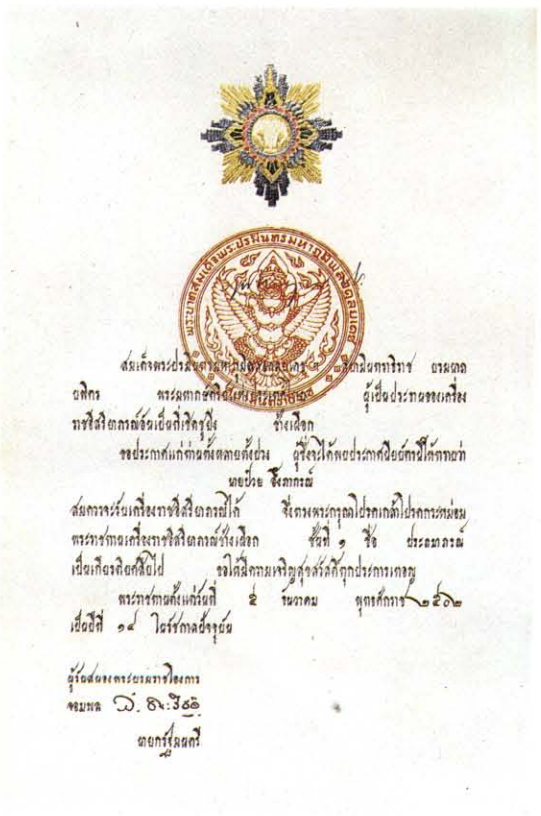 พระบาทสมเด็จพระปรมินทรมหาภูมิพลอดุลยเดช
สมเด็จพระปรมินทรมหาภูมิพลอดุลยเดช บรมนาถ
บพิตร ผู้เป็นประธานของเครื่อง
ราชอิสริยาภรณ์อันเป็นที่เชิดชูยิ่ง ช้างเผือก
ขอประกาศแก่ท่านทั้งหลายทั้งปวง ผู้ซึ่งจะได้พบประกาศนียบัตรนี้ได้ทราบว่า
นายป๋วย อึ๊งภากรณ์
สมควรจะรับเครื่องราชอิสริยาภรณ์ได้ จึ่งทรงพระกรุณาโปรดเกล้าโปรดกระหม่อม
พระราชทานเครื่องราชอิสริยาภรณ์ช้างเผือก ชั้นที่ ๑ ชื่อ ประถมาภรณ์
เป็นเกียรติยศสืบไป ขอให้มีความเจริญสุขสวัสดิ์ทุกประการเทอญ
พระราชทานตั้งแต่วันที่ ๕ ธันวาคม พุทธศักราช ๒๕๐๒
เป็นปีที่ ๑๔ ในรัชกาลปัจจุบัน
ผู้รับสนองพระบรมราชโองการ
จอมพล ส. ธนะรัชต์
นายกรัฐมนตรี